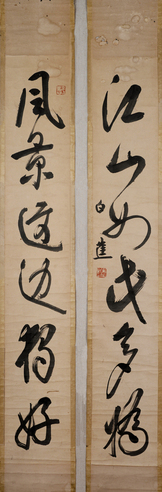 江山如此多娇
白蕉
风景这边独好